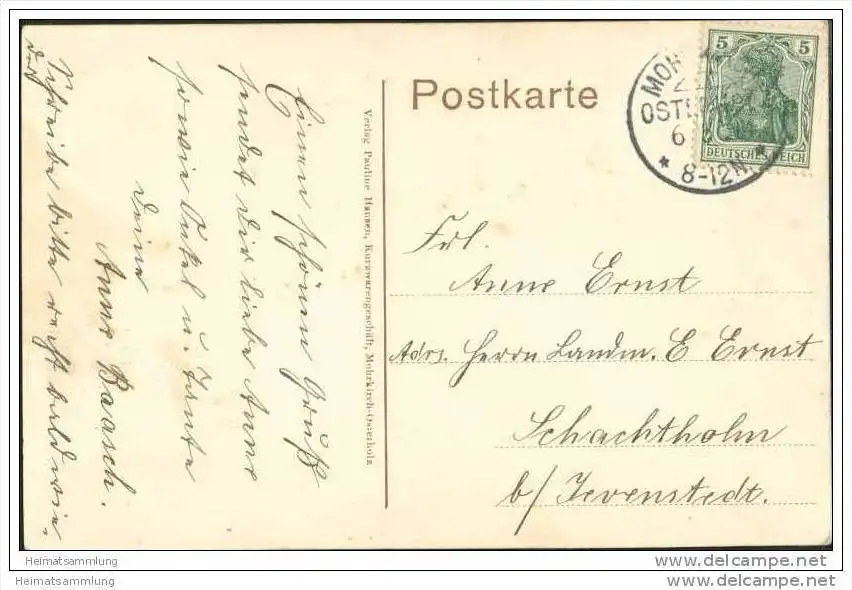 Postkarte
5 5
DEUTSCHES REICH
MOH
OSTE
6
* 8-12N. *
Einen schönen Gruß
sendet dir liebe Anne
sowie Onkel u. Tante
deine
Anne Baasch.
Schreibe bitte recht bald wie-
der
Verlag Pauline Hansen, Kurzwarengeschäft, Mohrkirch-Osterholz
Frl.
Anne Ernst
Adrs. Herrn Landm. E Ernst
Schachtholm
b/ Jevenstedt.
Heimatsammlung
Heimatsammlung
www.delcampe.net
www.delcampe.net